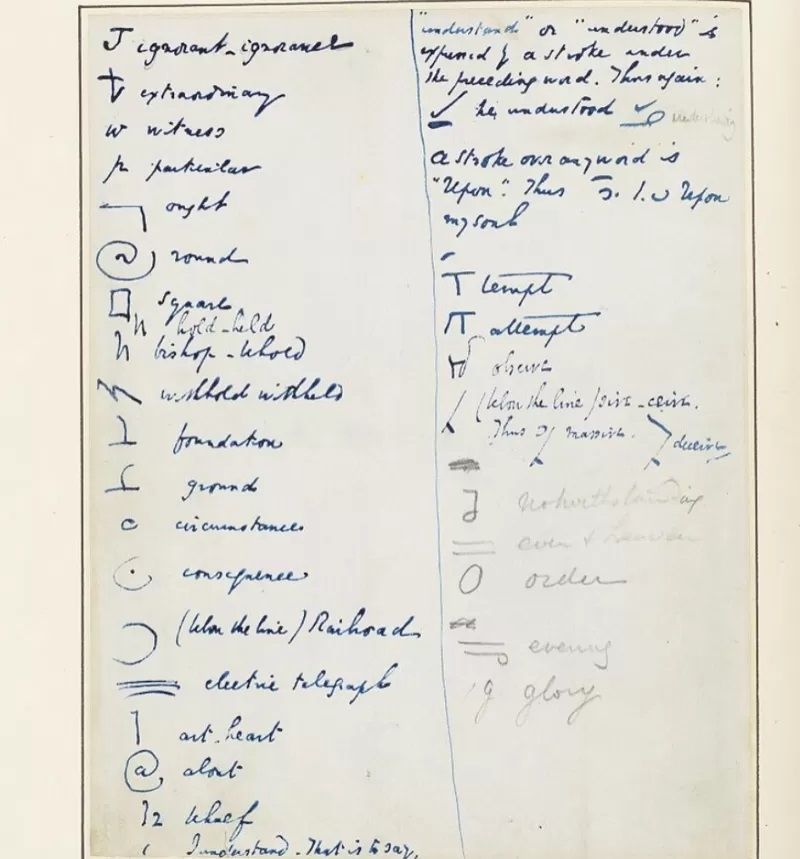 ignorant - ignorance
extraordinary
w witness
particular
ought
round
square
hold - held
bishop - behold
withhold withheld
foundation
ground
circumstances
consequence
(below the line) Railroad
electric telegraph
art - heart
@ about
wharf
I understand. That is to say,
"understand" or "understood" is
expressed by a stroke under
the preceding word. Thus again:
he understood
A stroke over any word is
"Upon". Thus Upon
my soul
T tempt
attempt
observe
(below the line) sive - ceive.
Thus massive. deceive
notwithstanding
even & heaven
order
evening
glory